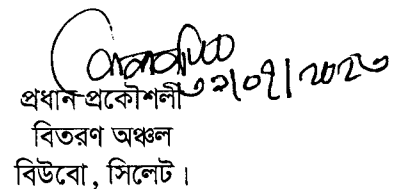 ৩১/০৭/২০২৩
প্রধান প্রকৌশলী
বিতরণ অঞ্চল
বিউবো, সিলেট।